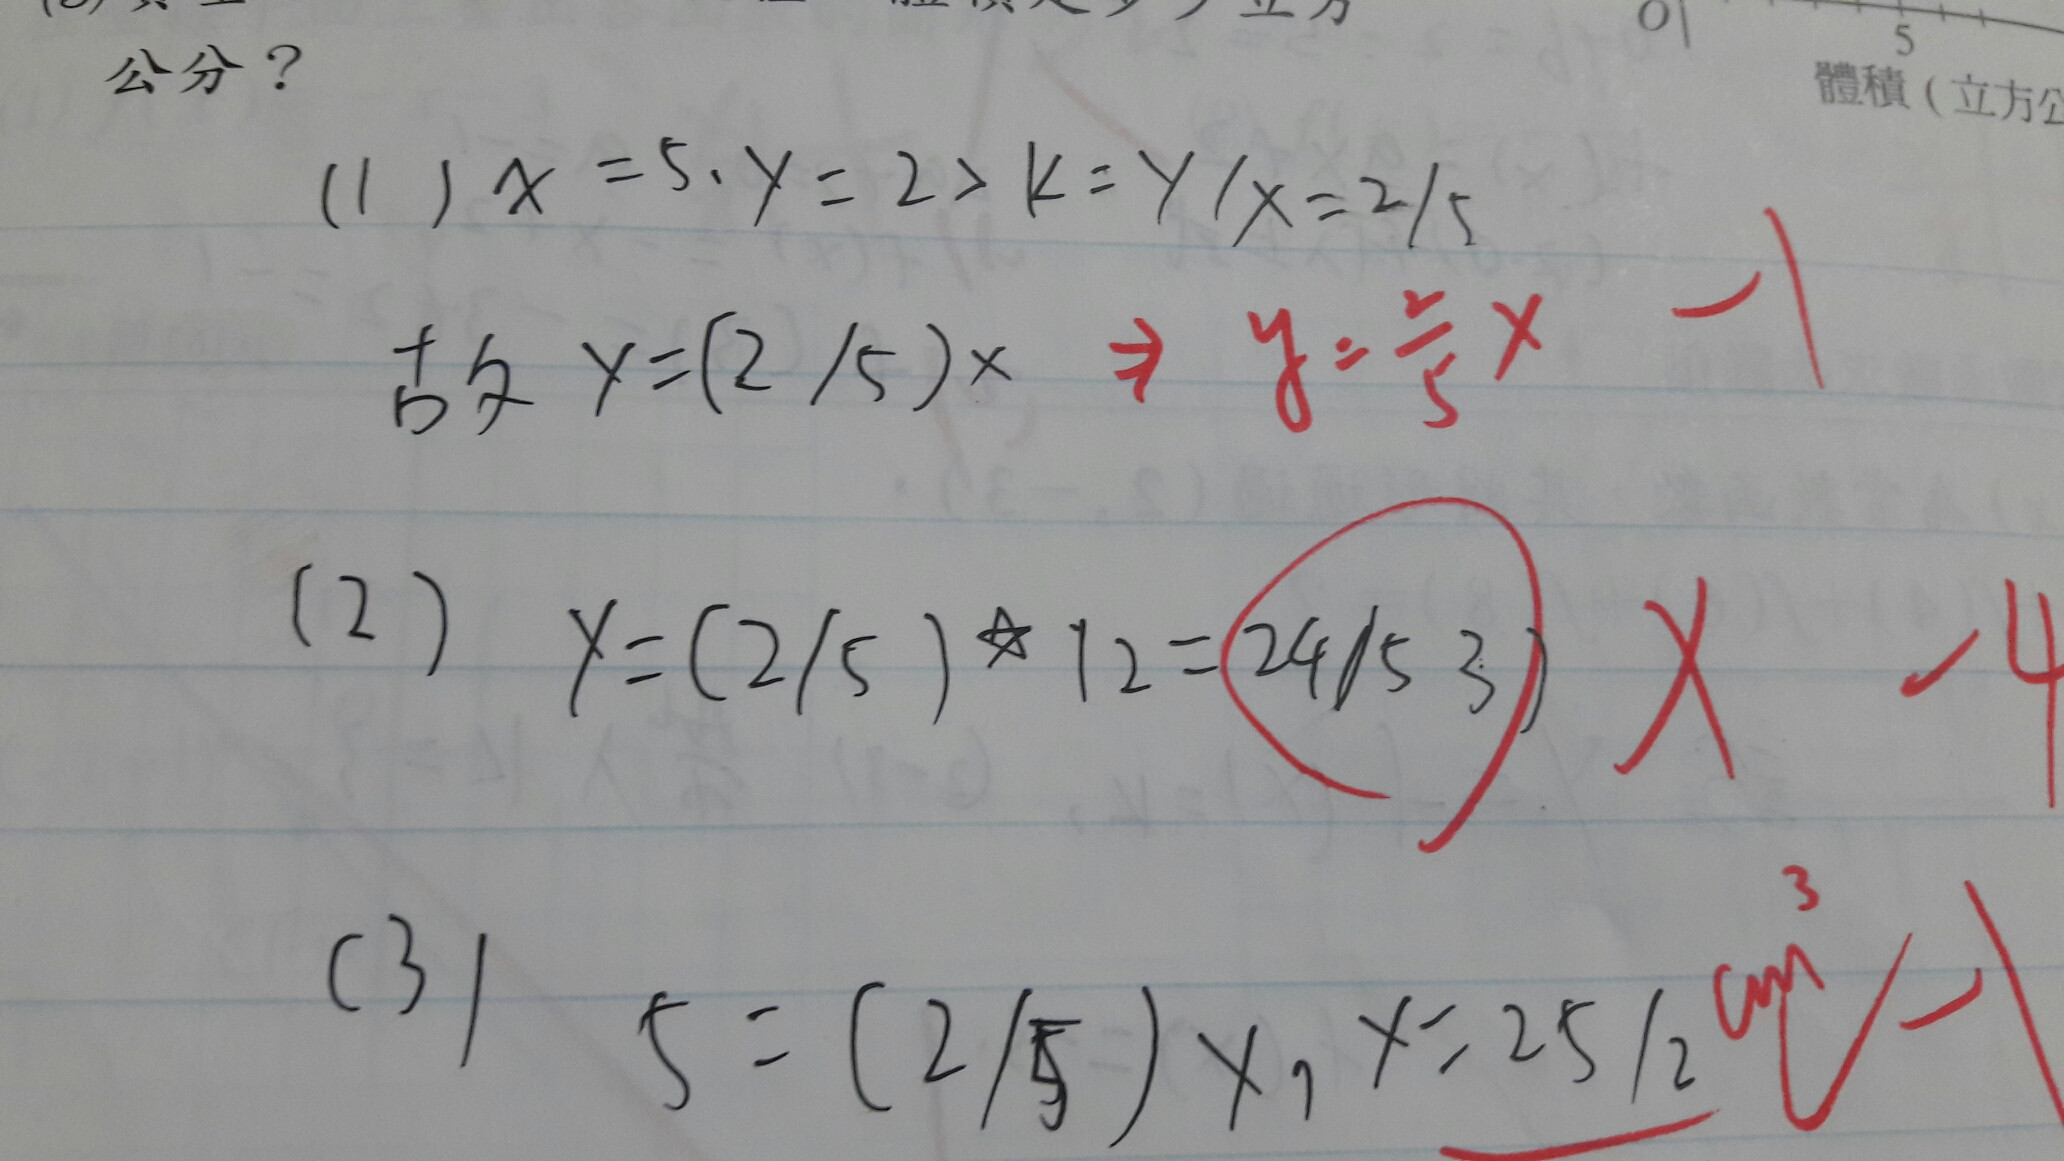 體積是多少立方
公分？
0
5
體積(立方公
(1) x=5、y=2> K=Y/X=2/5
故 y=(2/5)x ⇒ y=2/5 x -1
(2) y=(2/5)☆12=24/5 3) X -4
(3) 5=(2/5)x, x=25/2 cm³ -1